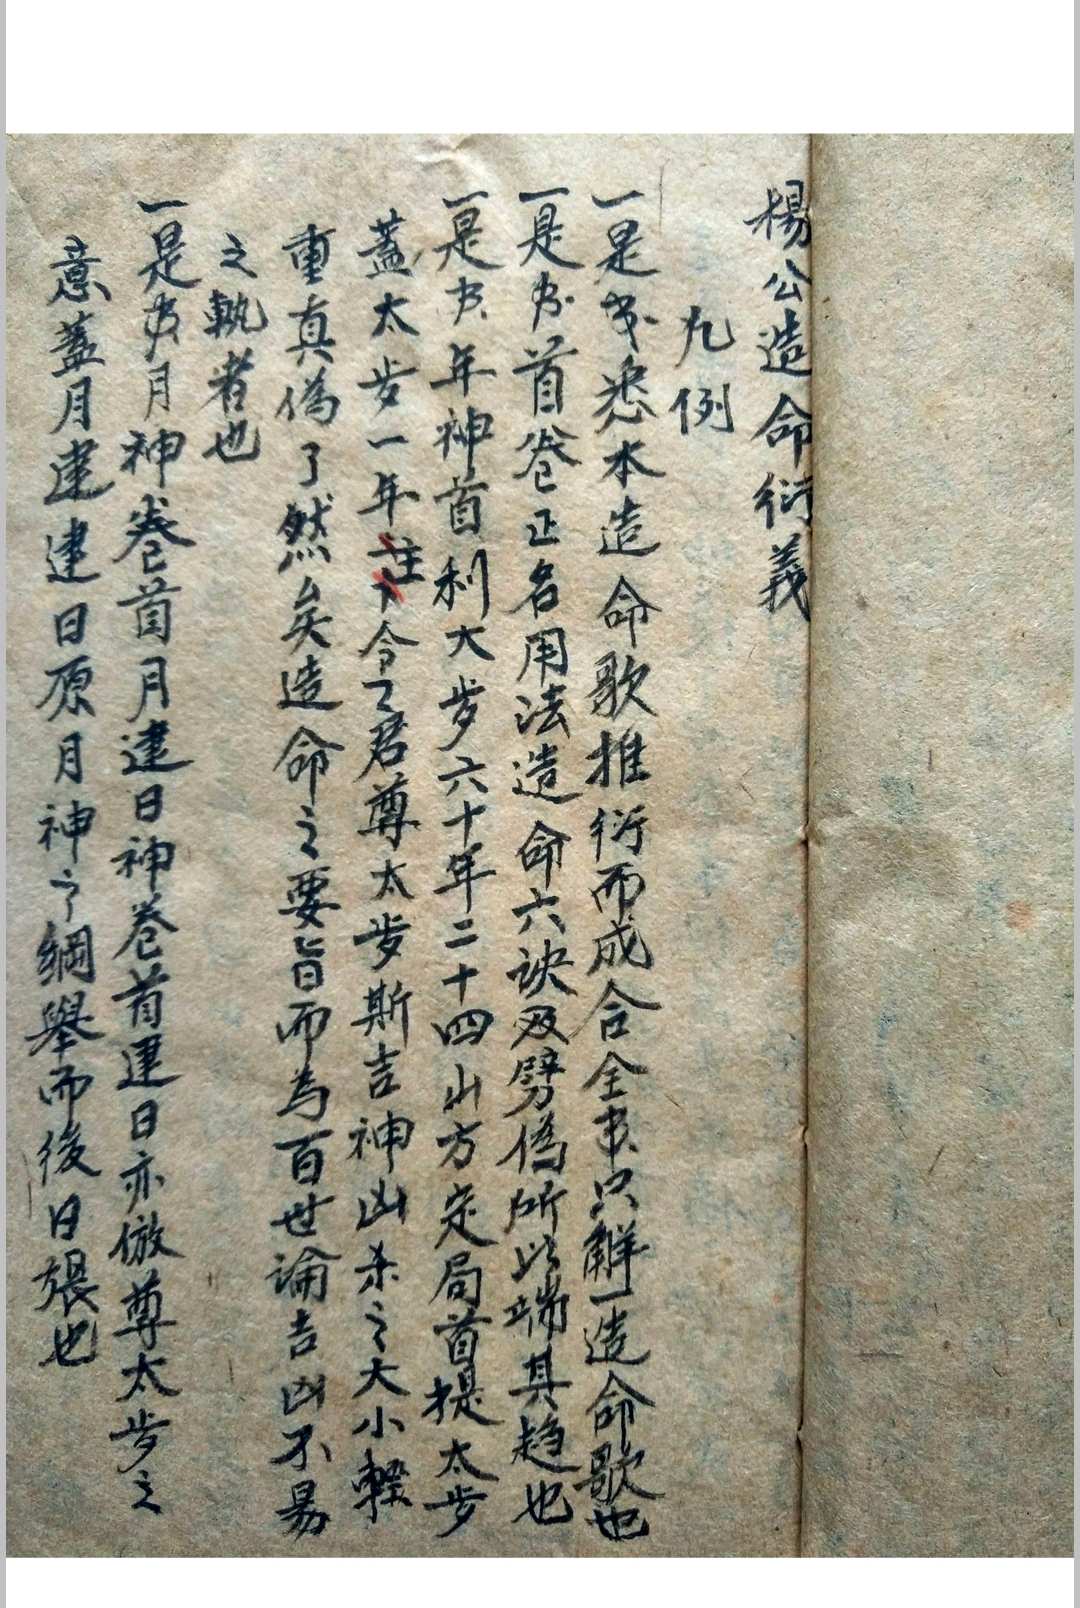 楊公造命衍義
凡例
一是书悉本造命歌推衍而成合全书只解一造命歌也
一是书首卷正名用法造命六訣及劈偽所以端其趋也
一是书年神首利大步六十年二十四山方定局首提太步
蓋太步一年主令之君尊太步斯吉神凶杀之大小輕
重真偽了然矣造命之要旨而為百世論吉凶不易
之執者也
一是书月神卷首月建日神卷首建日亦倣尊太步之
意蓋月建建日原月神之綱舉而後日張也